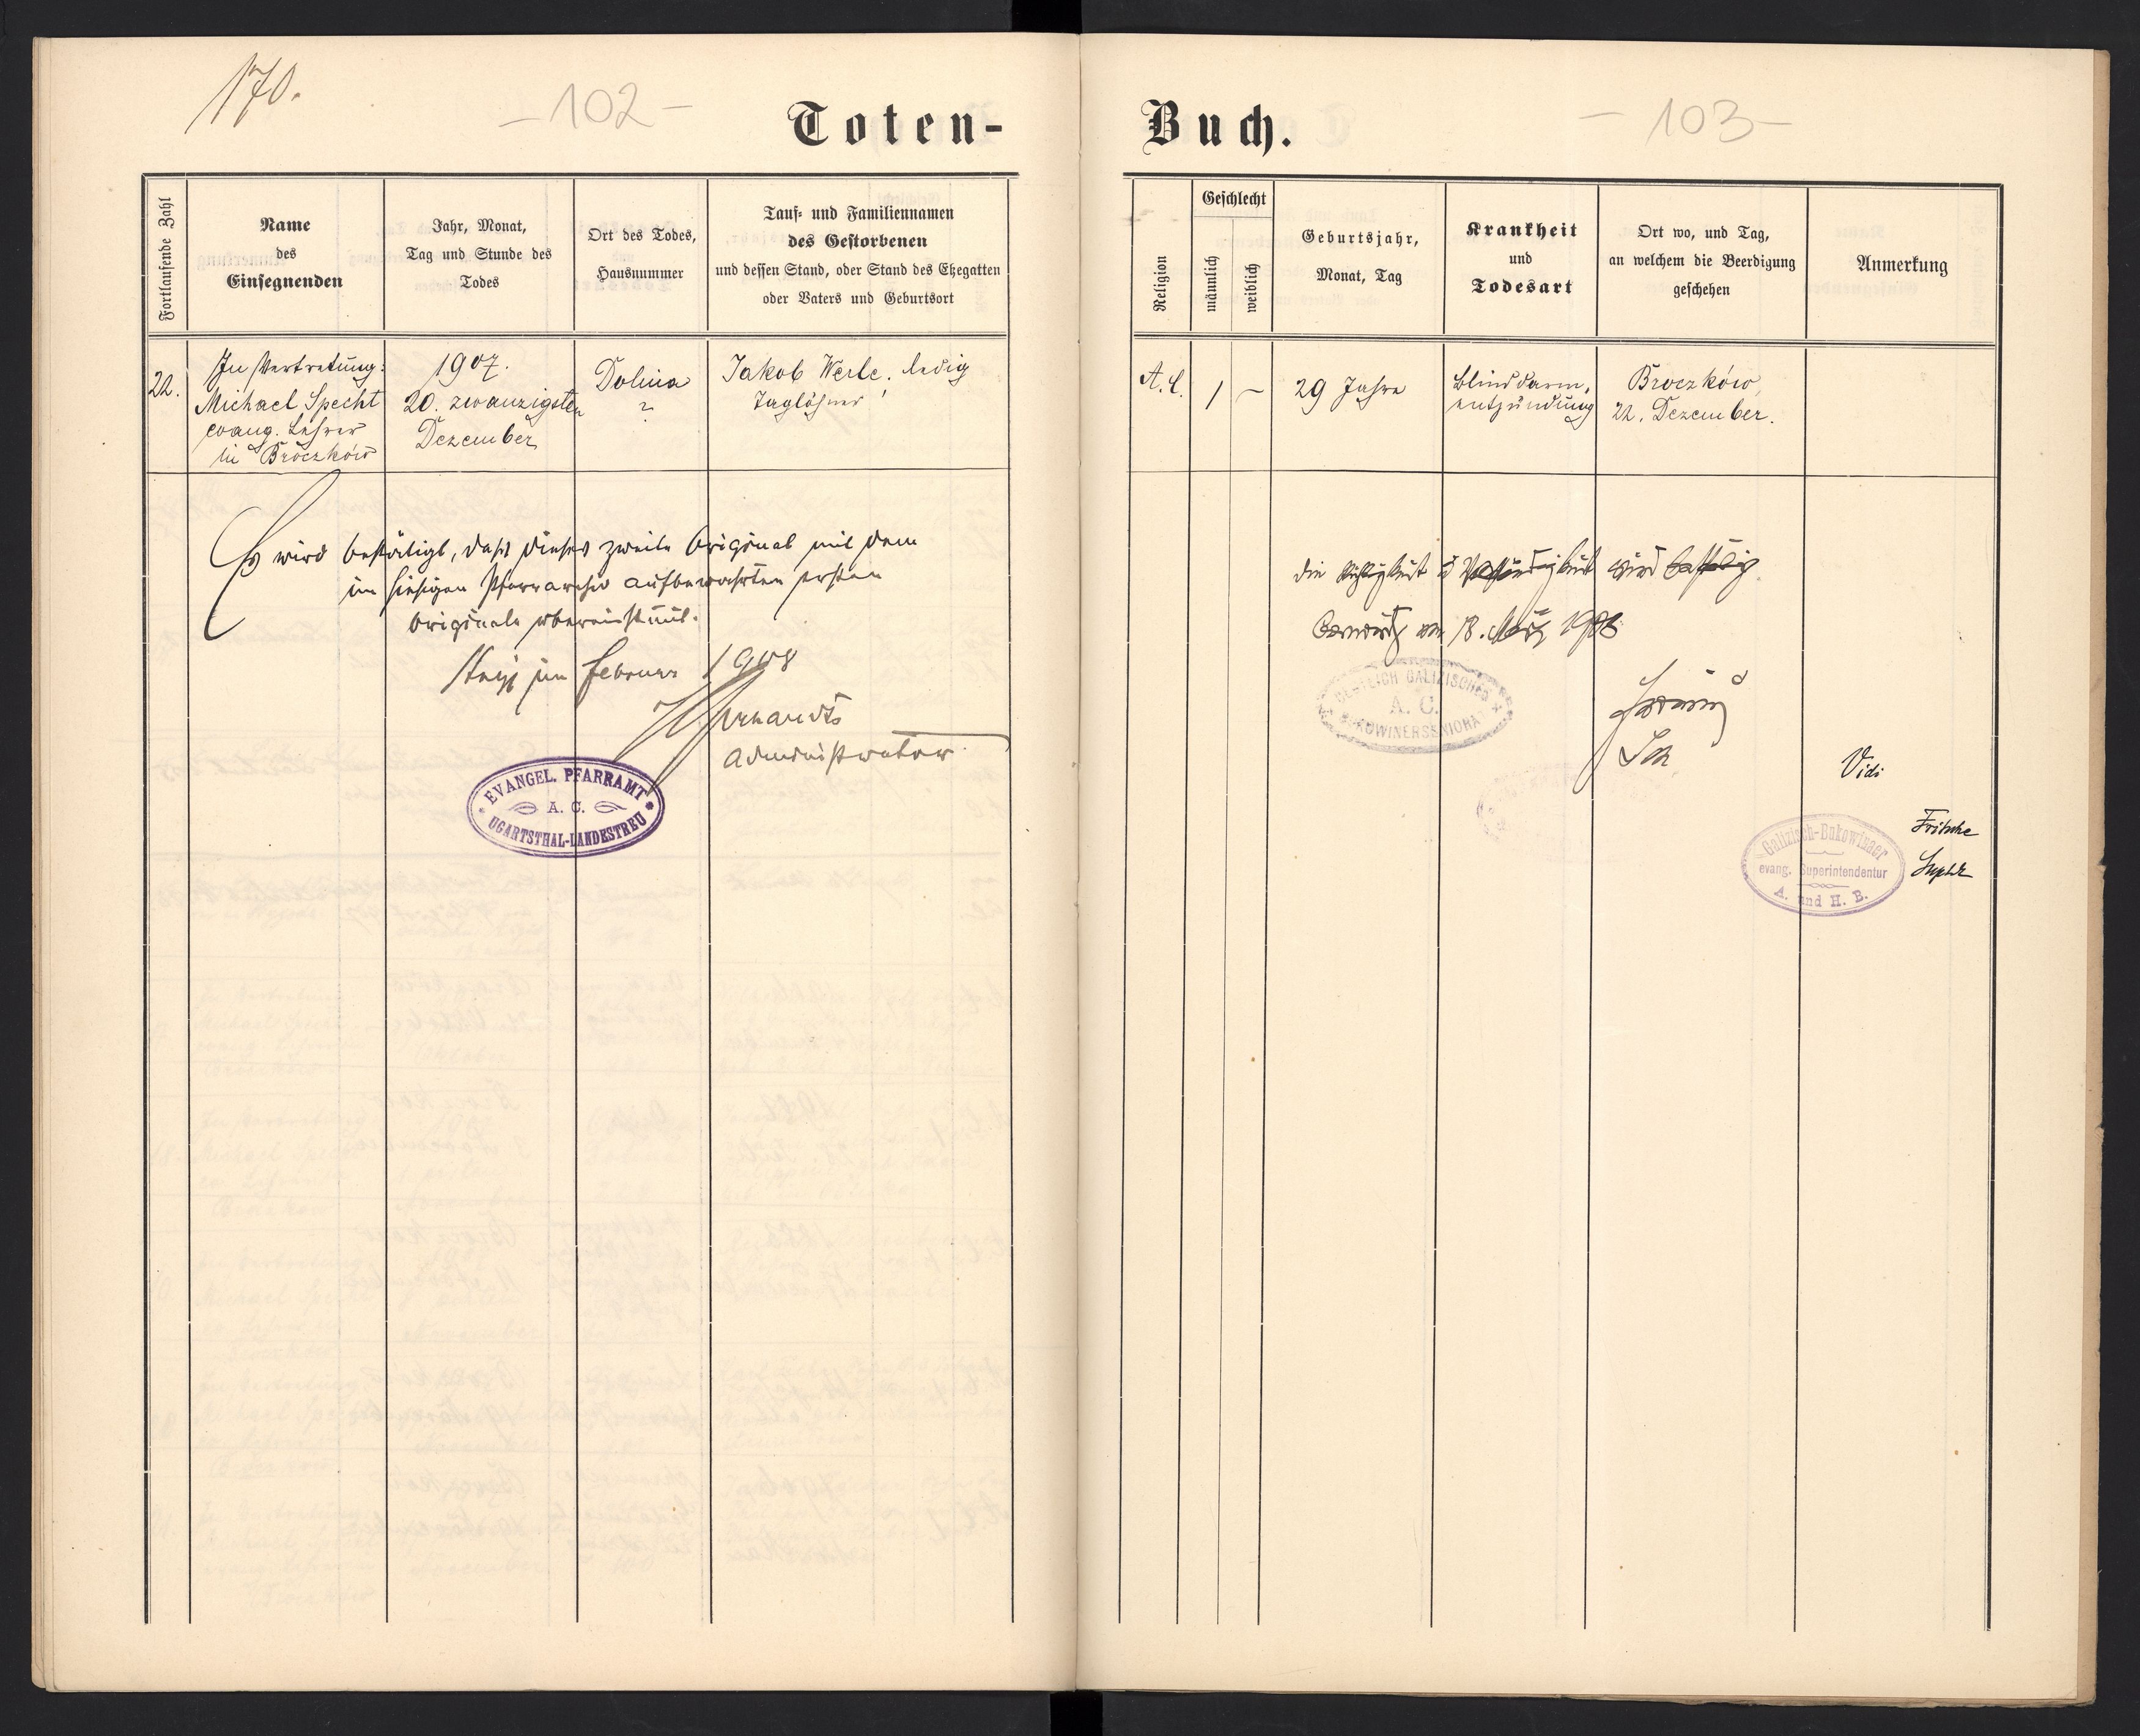 170.
- 102 -
Toten-
Fortlaufende Zahl
Name
des
Einsegnenden
Jahr, Monat,
Tag und Stunde des
Todes
Ort des Todes,
Hausnummer
Tauf- und Familiennamen
des Gestorbenen
und dessen Stand, oder Stand des Ehegatten
oder Vaters und Geburtsort
22.
In Vertretung:
Michael Specht
evang. Lehrer
in Broczków
1907.
20. zwanzigsten
Dezember
Dolina
?
Jakob Werle, ledig
Taglöhner
Es wird bestätigt, dass dieses zweite Original mit dem
im hiesigen Pfarrarchiv aufbewahrten ersten
Originale übereinstimmt.
im Februar 1908
Administrator
EVANGEL. PFARRAMT
A. C.
UGARTSTHAL-LANDESTREU
Buch.
- 103 -
Religion
Geschlecht
männlich
weiblich
Geburtsjahr,
Monat, Tag
Krankheit
und
Todesart
Ort wo, und Tag,
an welchem die Beerdigung
geschehen
Anmerkung
A.C.
1
~
29 Jahre
Blinddarm,
entzündung
Broczków,
22. Dezember.
Die Richtigkeit u Vollständigkeit wird bestätigt
am 18. März 1908
OESTLICH GALIZISCHES
A. C.
BUKOWINERSENIORA
Sen
Vidi
Fritsche
Supdt
Galizisch-Bukowinaer
evang. Superintendentur
A. und H. B.